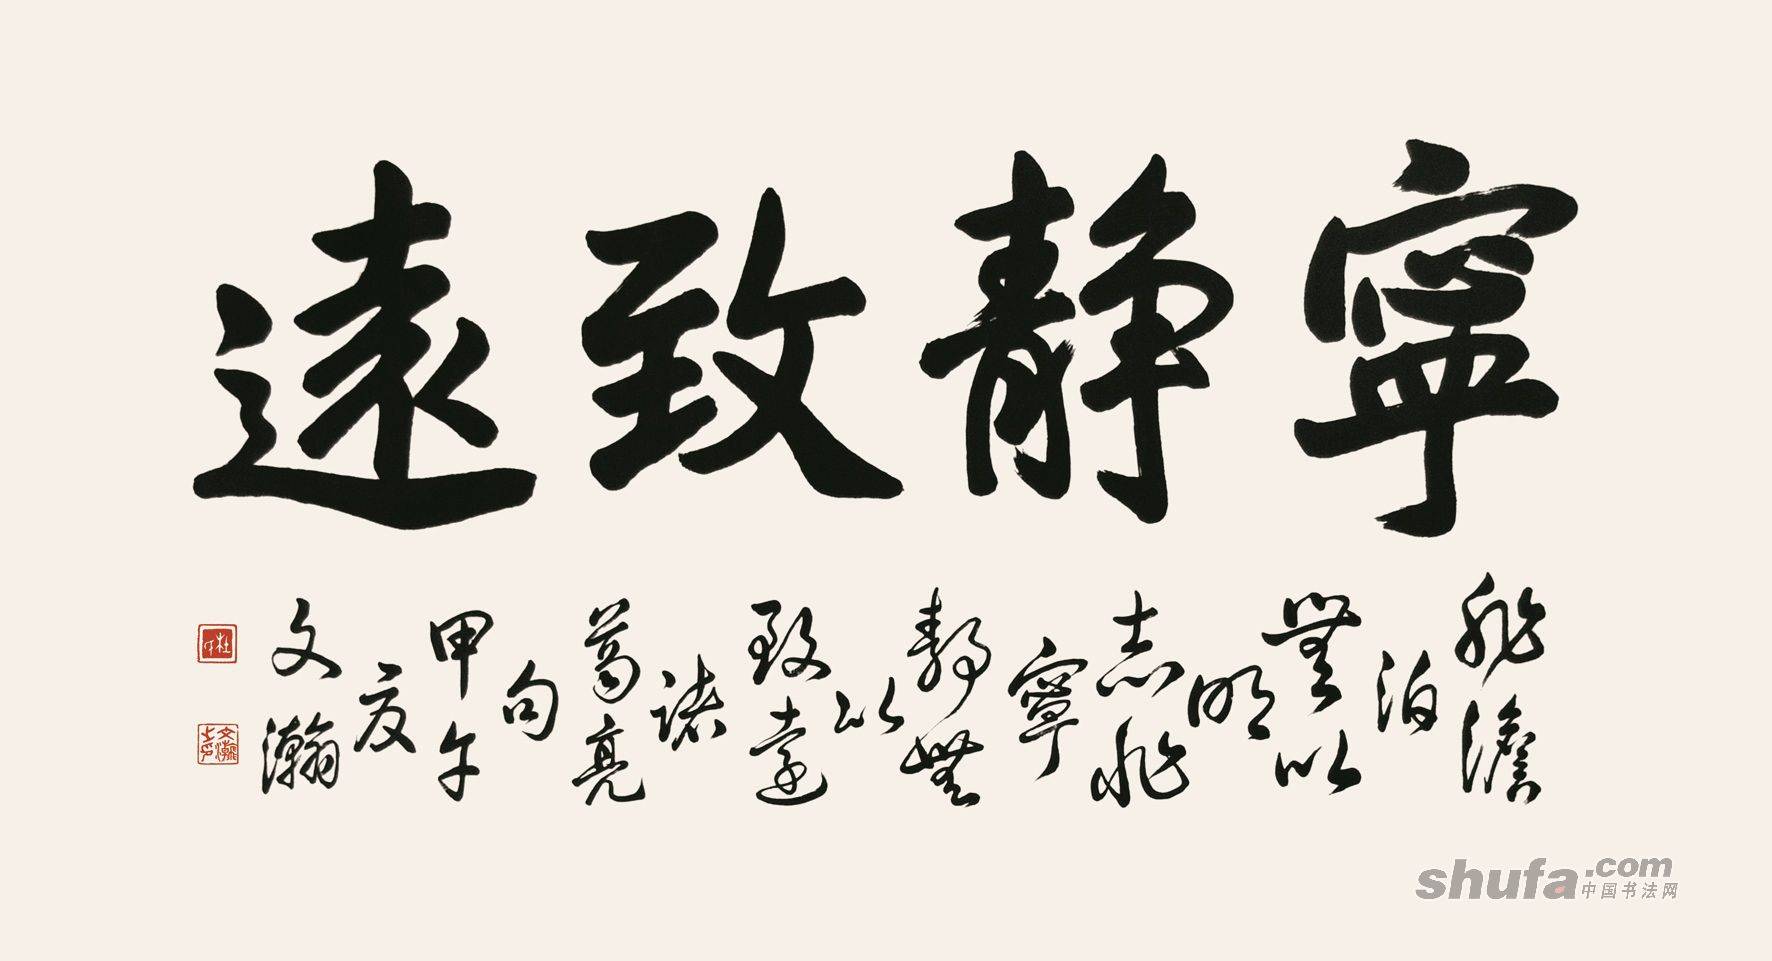 寧静致遠
非澹
泊
無以
明
志非
寧
静無
以
致遠
諸
葛亮
句
甲午
夏
文瀚
shufa.com
中国书法网